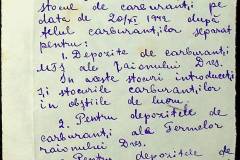 stocul de carburanți pe
data de 20/XI 1942 după
felul carburanților separat
pentru:
1. Depozite de carburanți
MTS ale raionului Dvs.
În aceste stocuri introduceți
și stocurile carburanților
în obștiile de lucru.
2. Pentru depozitele de
carburanți ale Fermelor
raionului Dvs.
3. Pentru depozitele de